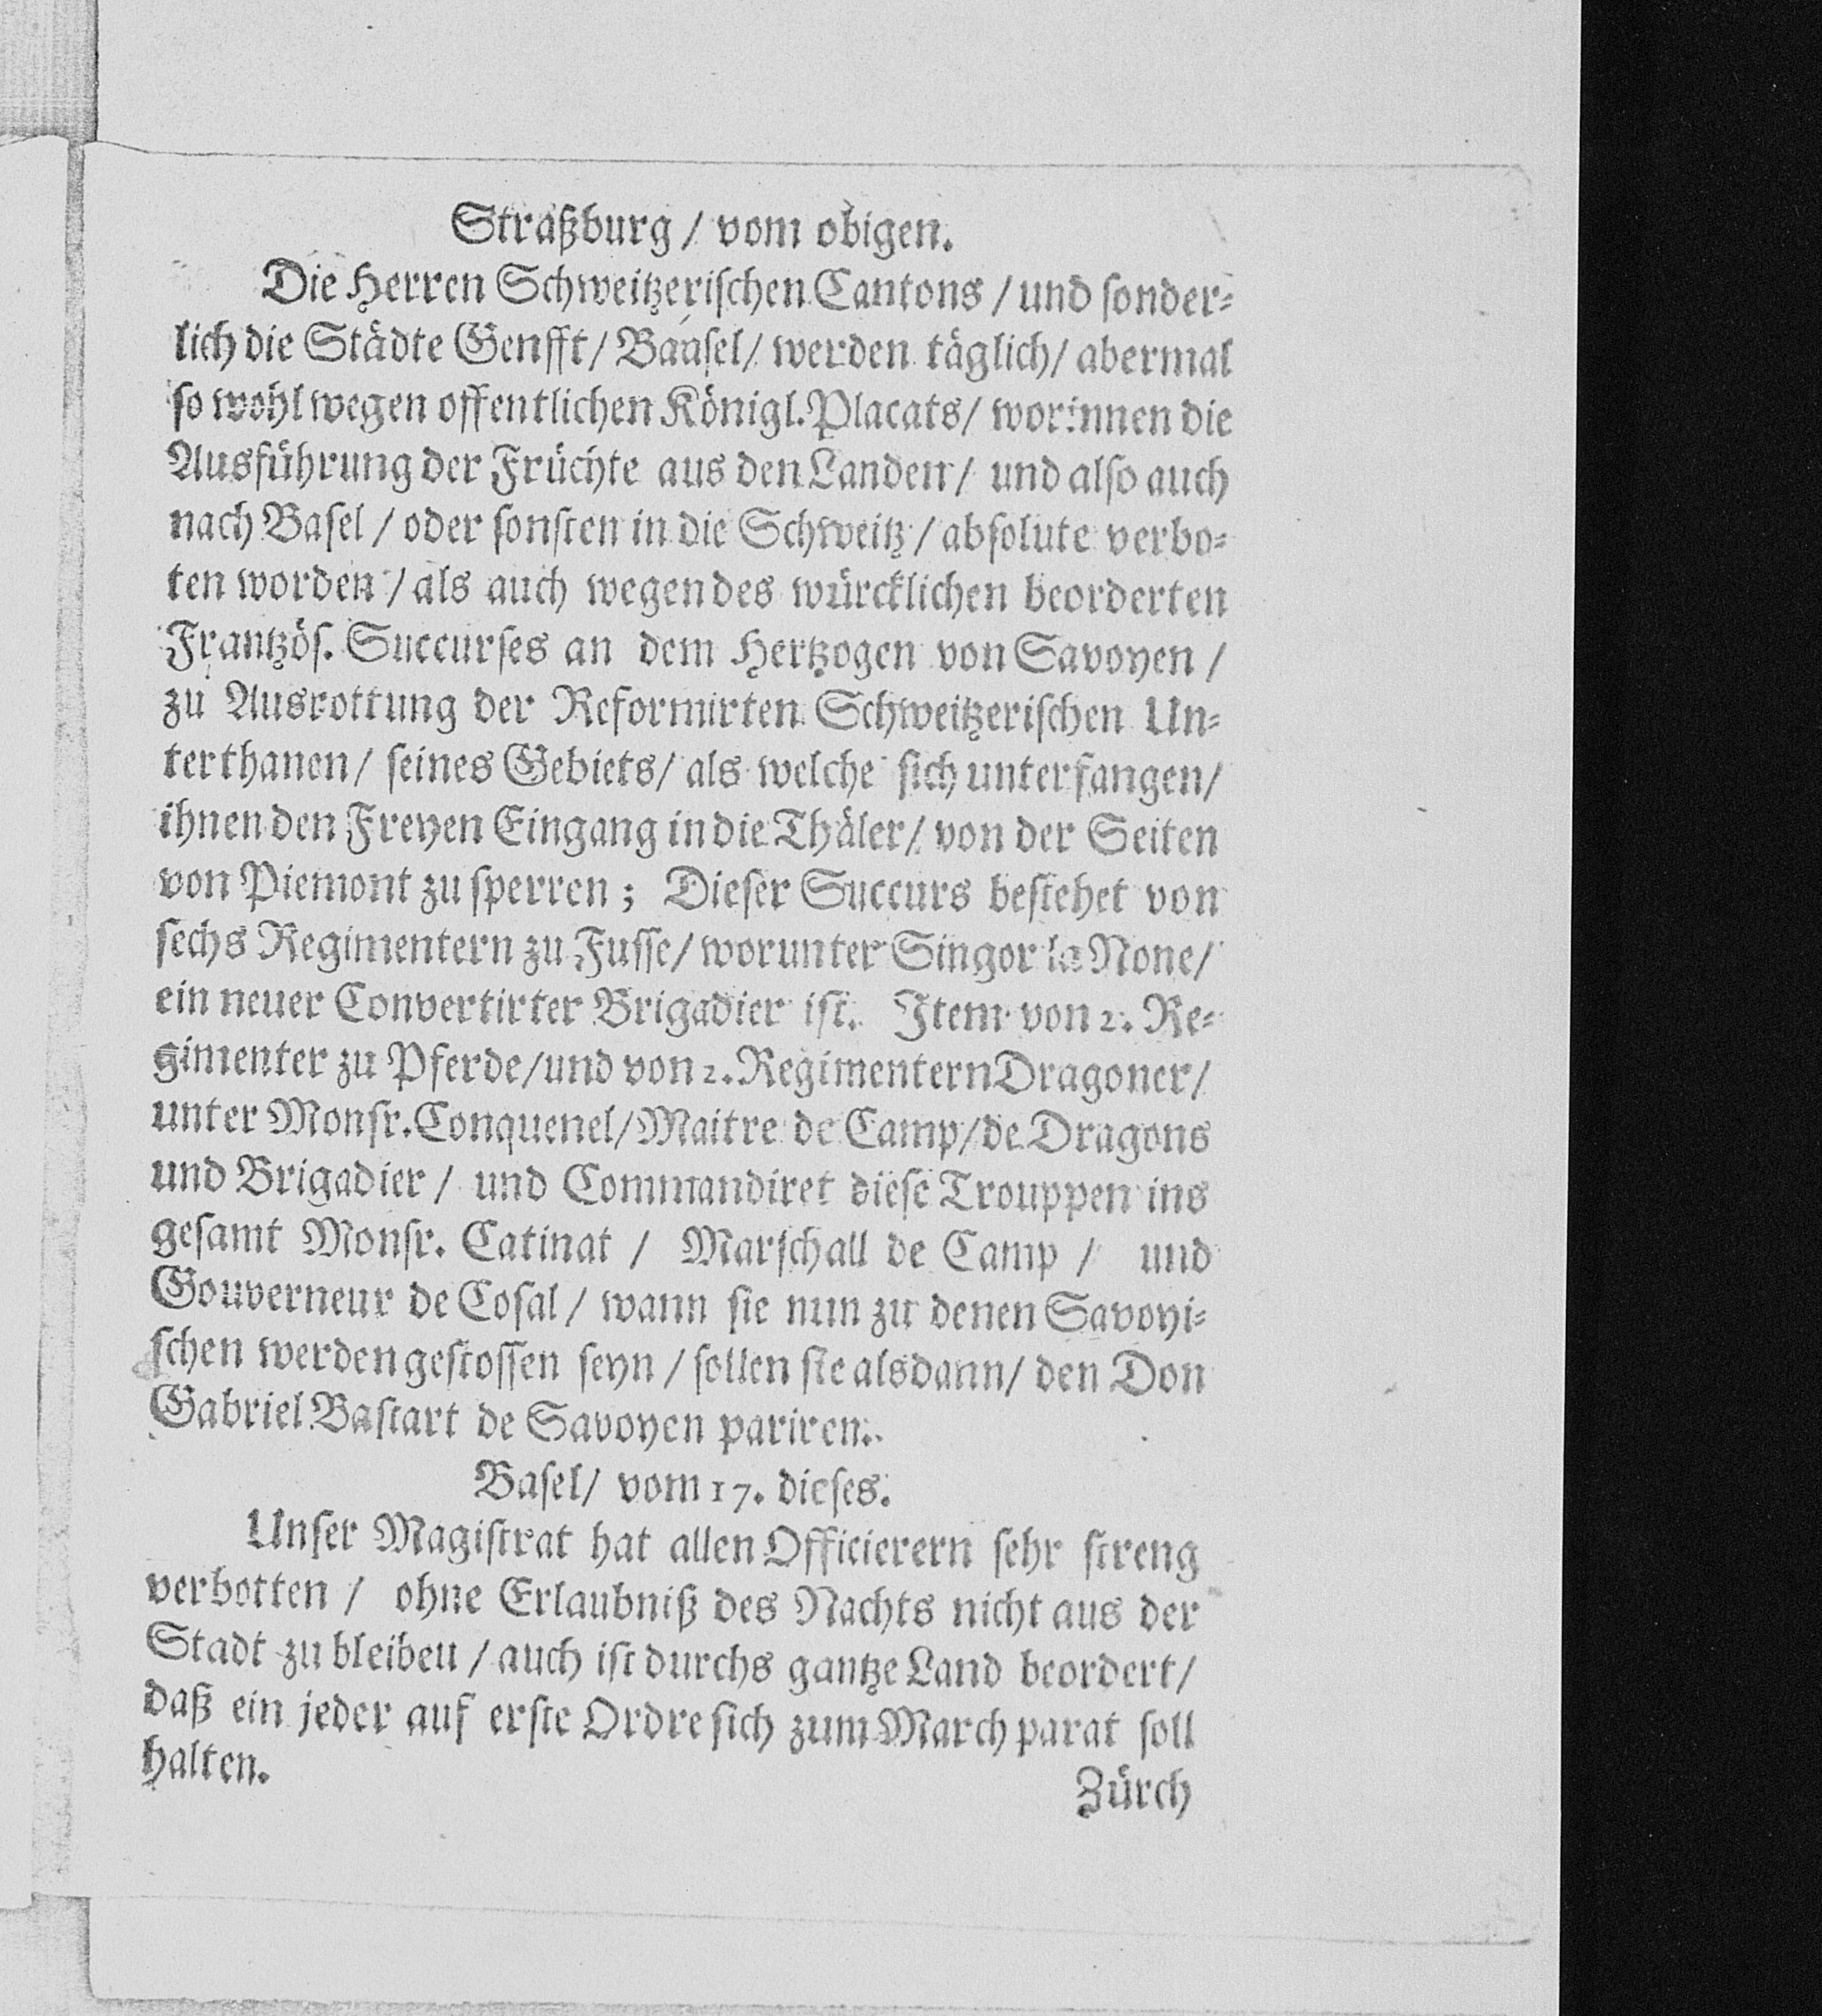 Straßburg / vom obigen.
Die Herren Schweitzerischen Cantons / und sonder-
lich die Städte Genfft / Baasel / werden täglich / abermal
so wohl wegen offentlichen Königl. Placats / worinnen die
Ausführung der Früchte aus den Landen / und also auch
nach Basel / oder sonsten in die Schweitz / absolute verbo-
ten worden / als auch wegen des würcklichen beorderten
Frantzös. Succurses an dem Hertzogen von Savoyen /
zu Ausrottung der Reformirten Schweitzerischen Un-
terthanen / seines Gebiets / als welche sich unterfangen /
ihnen den Freyen Eingang in die Thäler / von der Seiten
von Piemont zu sperren ; Dieser Succurs bestehet von
sechs Regimentern zu Fusse / worunter Singor la None /
ein neuer Convertirter Brigadier ist. Item von 2. Re-
gimenter zu Pferde / und von 2. Regimentern Dragoner /
unter Monsr. Conquenel / Maitre de Camp / de Dragons
und Brigadier / und Commandiret diese Trouppen ins
gesamt Monsr. Catinat / Marschall de Camp / und
Gouverneur de Cosal / wann sie nun zu denen Savoyi-
schen werden gestossen seyn / sollen sie alsdann / den Don
Gabriel Bastart de Savoyen pariren.
Basel / vom 17. dieses.
Unser Magistrat hat allen Officierern sehr streng
verbotten / ohne Erlaubniß des Nachts nicht aus der
Stadt zu bleibeu / auch ist durchs gantze Land beordert /
daß ein jeder auf erste Ordre sich zum March parat soll
halten.
Zürch